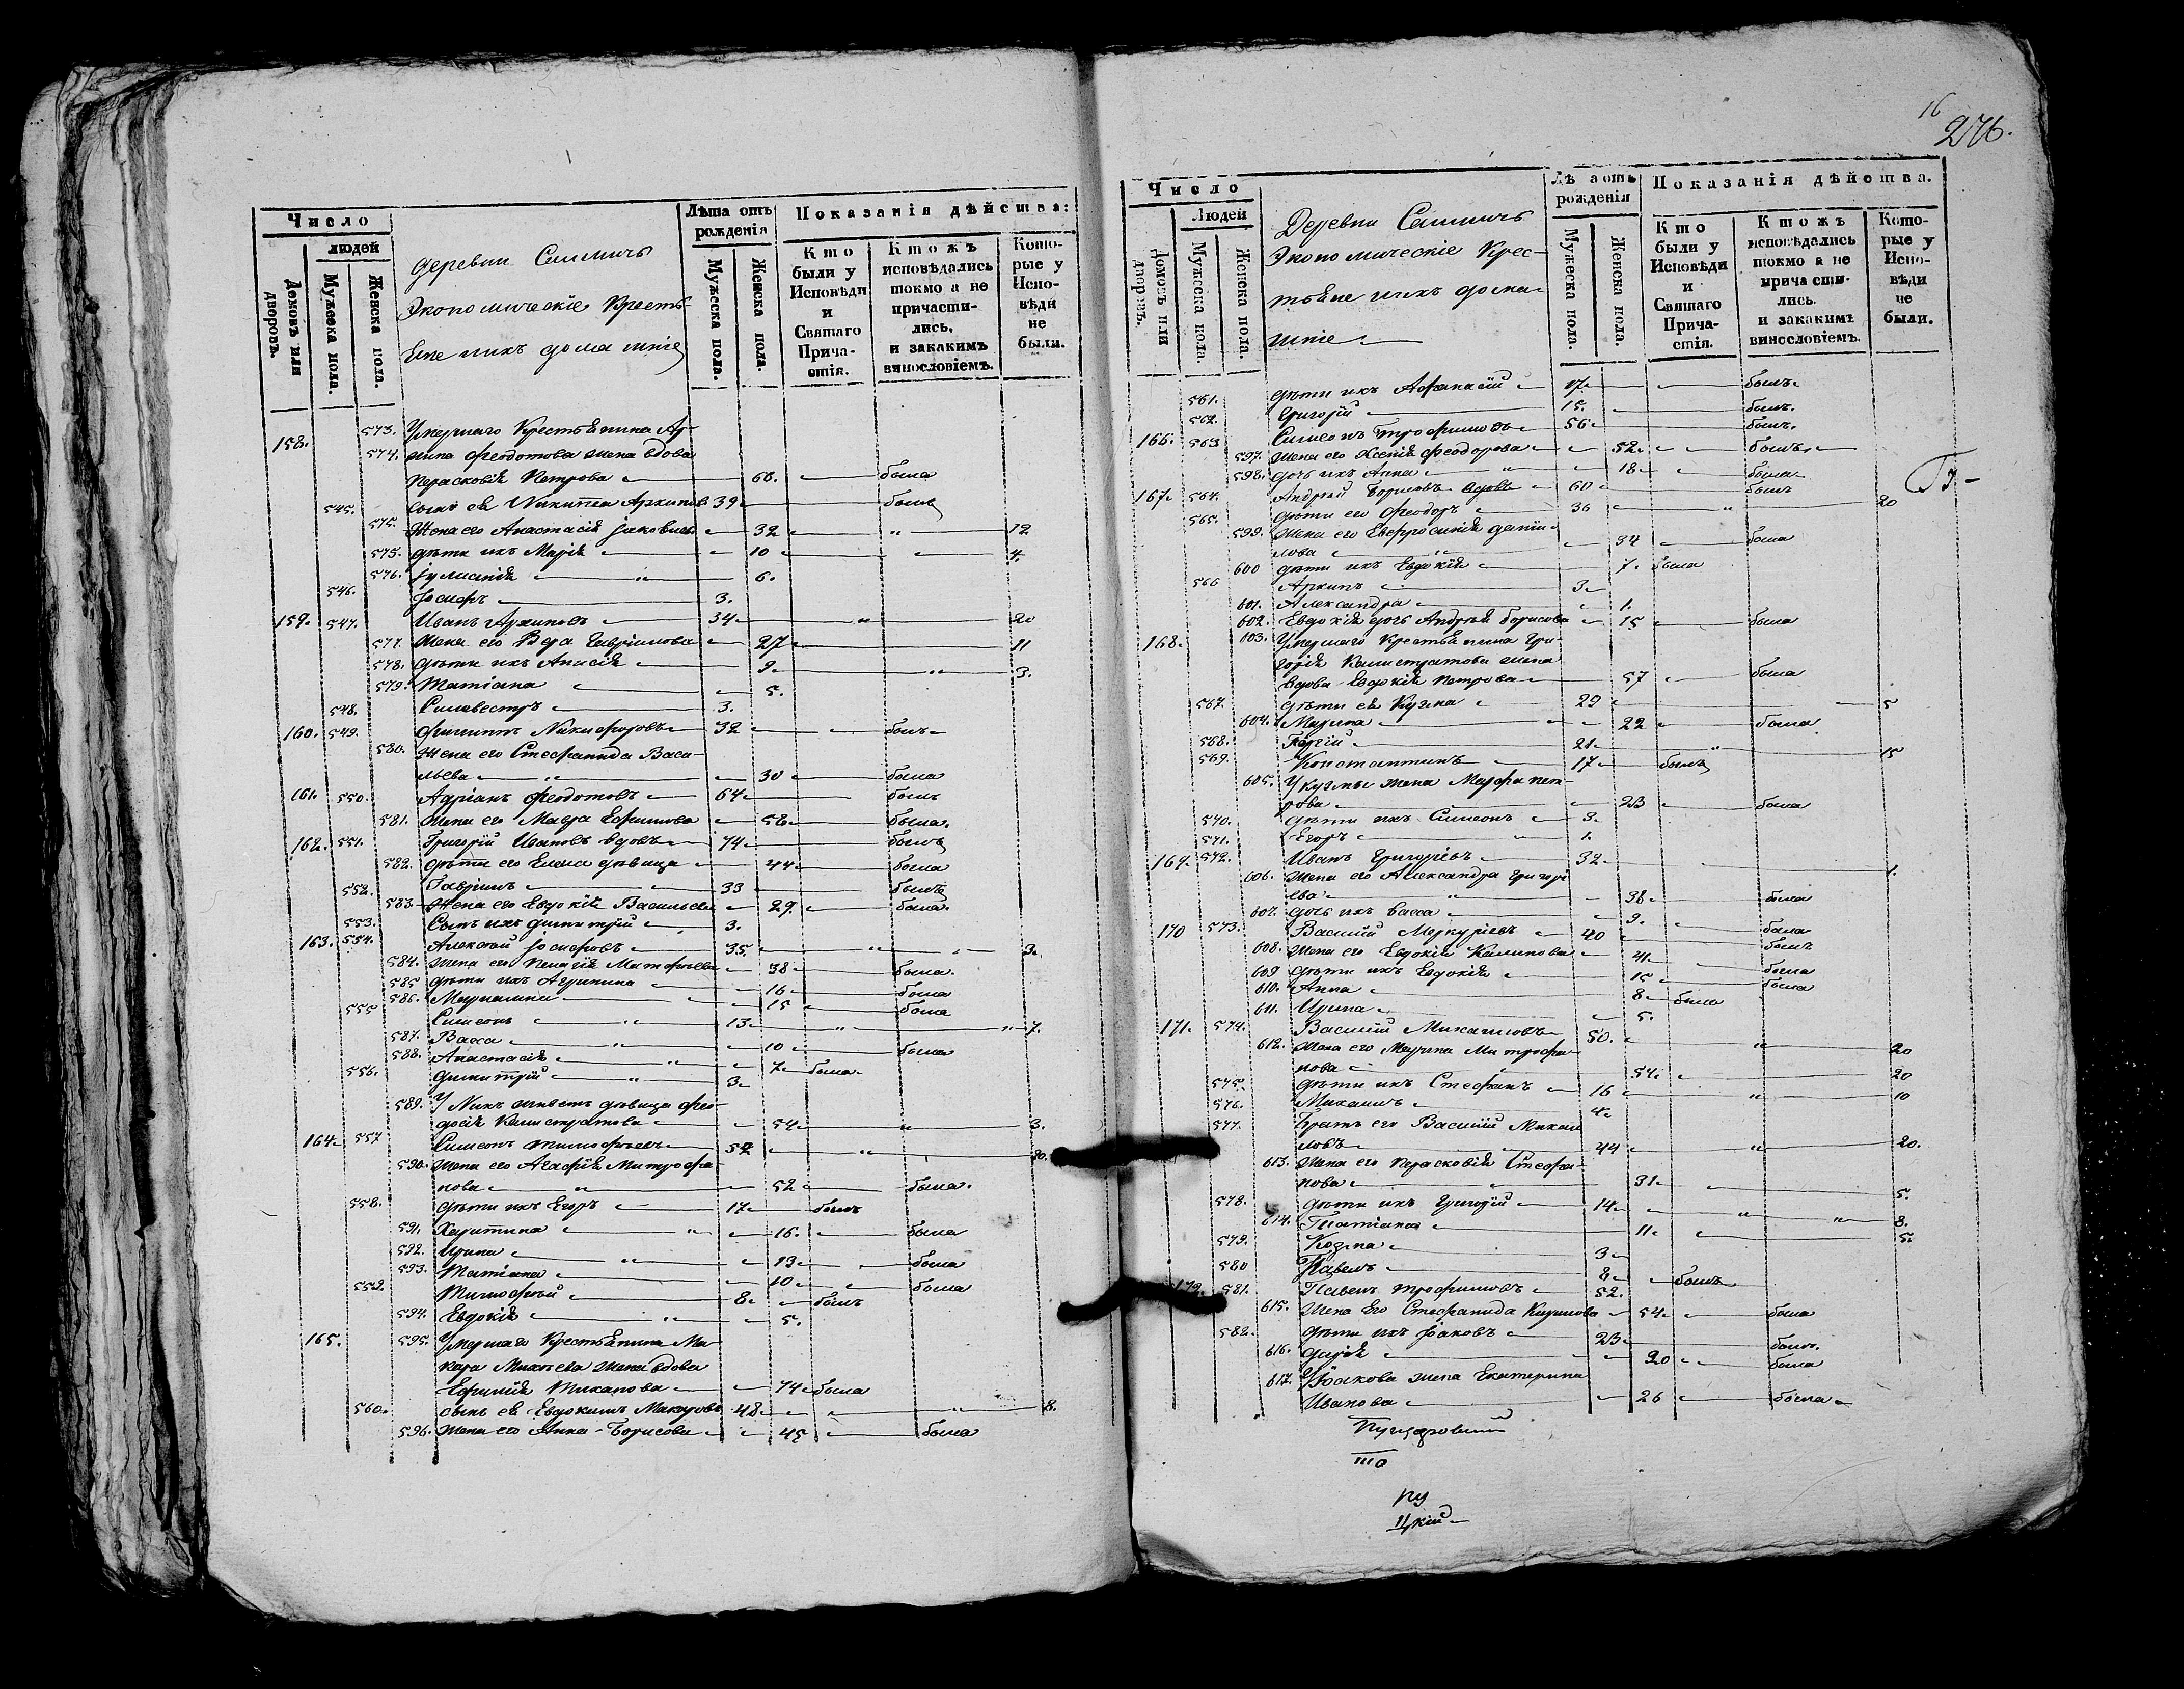 Число
людей
Домовъ или дворовъ.
Мужеска пола.
Женска пола.
деревни
Экономическіе Крестья
не и ихъ домашніе
Лѣта отъ рожденія
Мужеска пола.
Женска пола.
Показанія дѣйства:
Кто были у Исповѣди и Святаго Причастія.
Ктожъ исповѣдались токмо а не причастились, и закакимъ винословіемъ.
Которые у Исповѣди не были.
158. 573. Умершаго Крестьянина Ар-
574. хипа Феодотова жена вдова
Парасковія Петрова 66. была
545. сынъ ея Никита Архиповъ 39 былъ
575. Жена его Анастасія Іаковлева 32 " 12
575. дѣти ихъ Марія 10 4.
576. Іуліанія " 6.
546. Іосифъ 3.
159. 547. Иванъ Архиповъ 34 " 20
577. Жена его Вера Гавриилова 27 11
578. дѣти ихъ Анисія 9 " 3.
579. Татіана 5.
548. Силвестръ 3.
160. 549. Филиппъ Никифоровъ 32 былъ
580. Жена его Стефанида Васи-
льева " 30 была
161. 550. Адріанъ Феодотовъ 64 былъ
581. Жена его Мавра Ефимова 58 была.
162. 551. Григорій Ивановъ вдовъ 74 былъ
582. дѣти его Елена дѣвица 44 была
552. Гавріилъ 33 былъ
583. Жена его Евдокія Васильева 29. была.
553. Сынъ ихъ Димитрій 3.
163. 554. Алексѣй Іосифовъ 35. " 3.
584. Жена его Пелагія Матфеева 38 была.
585 дѣти ихъ Агрипина 16 была
586. Маріамна 15 была
555 Симеонъ " 13 " " 7.
587. Васса " 10 была
588. Анастасія " 7 была
556. Димитрій " 3
589. У Нихъ живетъ дѣвица Фео-
досія Калистратова 54 " 3.
164. 557 Симеонъ Тимофеевъ 54 " 20.
590. Жена его Агафія Митрофа-
нова " 52 была.
558. дѣти ихъ Егоръ 17 былъ
591. Харитина " 16. была
592. Ирина " 13 была
593. Татіана 10 была
559 Тимофей 8 былъ
594. Евдокія " 5.
165. 595. Умершаго Крестьянина Ма-
кара Михеева жена вдова
Ефимія 74 была
560. сынъ ея Евдокимъ Макаровъ 48 " 8.
596. Жена его Анна Борисова 45 была
16
276.
Число
Людей
Домовъ или дворовъ.
Мужеска пола.
Женска пола.
Деревни
Экономическіе Крес-
тьяне и ихъ дома-
шніе
Лѣ а отъ рожденія
Мужеска пола.
Женска пола.
Показанія дѣйства.
Кто были у Исповѣди и Святаго Причастія.
Ктожъ исповѣдались токмо а не причастились. и закакимъ винословіемъ.
Которые у Исповѣди не были.
561. дѣти ихъ Афанасій 17. былъ
562. Григорій 15. былъ.
166. 563 Симеонъ Трофимовъ 56 былъ.
597. Жена его Ксенія Феодорова 52. былъ
598. дочь ихъ Анна " 18 была
167. 564. Андрей Борисовъ вдовъ 60 былъ
565. дѣти его Феодоръ 36 " 20
599. Жена его Евфросинія Дании-
лова " 34 была
600 дѣти ихъ Евдокія 7. была
566 Архипъ 3
601. Александра 1.
602. Евдокія дочь Андрея Борисова 15 была
168. 603. Умершаго Крестьянина Гри-
горія Калистратова жена
вдова Евдокія Петрова 57 была
567. дѣти ея Кузма 29 5
604. Марина 22 была
568. Георгій 21 " 15
569. Константинъ 17 былъ
605. У Кузмы жена Марфа Пет-
рова 23 была
540. дѣти ихъ Симеонъ 3.
571. Егоръ 1.
169. 572. Иванъ Григорьевъ 32 1.
606. Жена его Александра Григорі
ева " 36 была
607. дочь ихъ Васса 9. была
170 573. Василій Меркуріевъ 40 былъ
608. Жена его Евдокія Калинова 41 была
609 дѣти ихъ Евдокія 15 была
610. Анна 8 была
611. Ирина 5.
171. 574. Василій Михаиловъ 50. " 20
612. Жена его Марина Митрофа-
нова 54. 20
575. дѣти ихъ Стефанъ 16 " 10
576. Михаилъ 4.
577. Братъ его Василій Михаи
ловъ 44 " 20.
613. Жена его Парасковія Стефа-
нова 31 " 5.
578. дѣти ихъ Григорій 14 " " 8.
614. Татіана 11. 5.
579. Козма 3
580 Павелъ 8 былъ
172. 581. Павелъ Трофимовъ 52.
615. Жена Его Стефанида Кирилова 54. была
582. дѣти ихъ Іаковъ 23 былъ.
616. Дарія 20 была
617. У Іакова жена Екатерина
Иванова 26 была